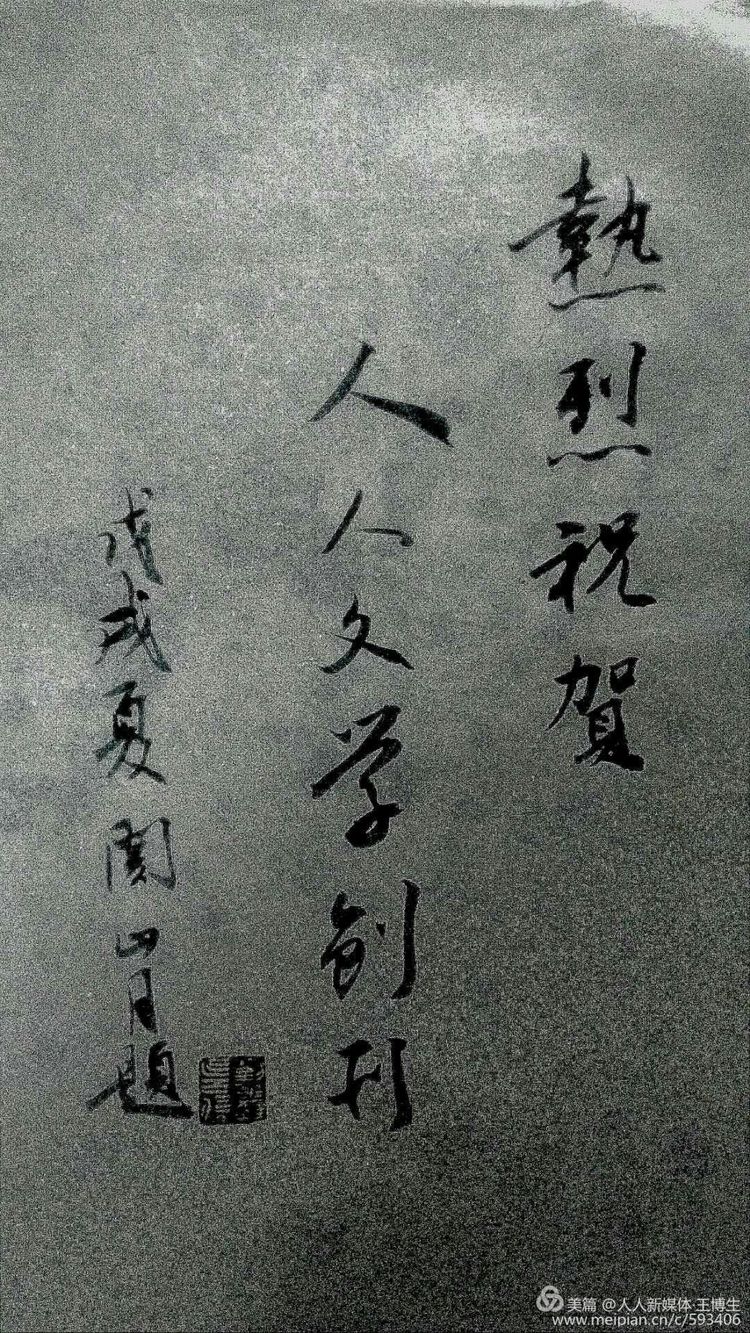 熱烈祝賀
人人文学创刊
戊戌夏月題
美篇 @人人新媒体·王博生
www.meipian.cn/c/593406